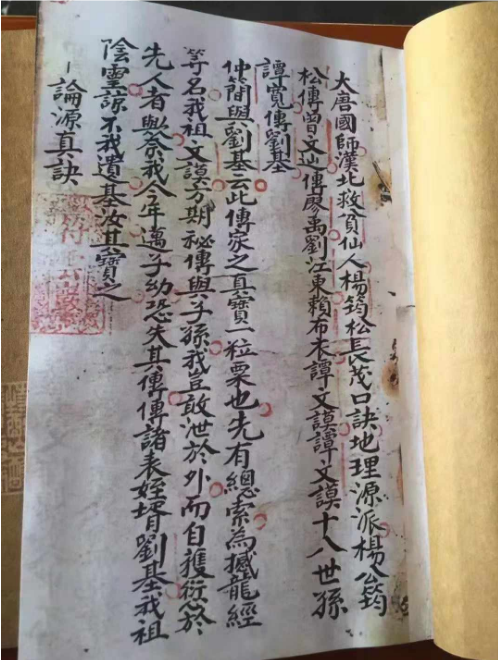 大唐國師漢北救貧仙人楊筠松長茂口訣地理源派楊公筠
松傳曾文辿傳廖禹劉江東賴布衣譚文謨譚文謨十八世孫
譚寬傳劉基
仲簡與劉基云此傳家之真寶一粒粟也先有總索為撼龍經
等名我祖文謨方期秘傳與子孫我豈敢泄於外而自獲愆於
先人者與奈我今年邁子幼恐失其傳傳諸表姪壻劉基我祖
陰靈諒不我遣基汝其寶之
一論源真訣